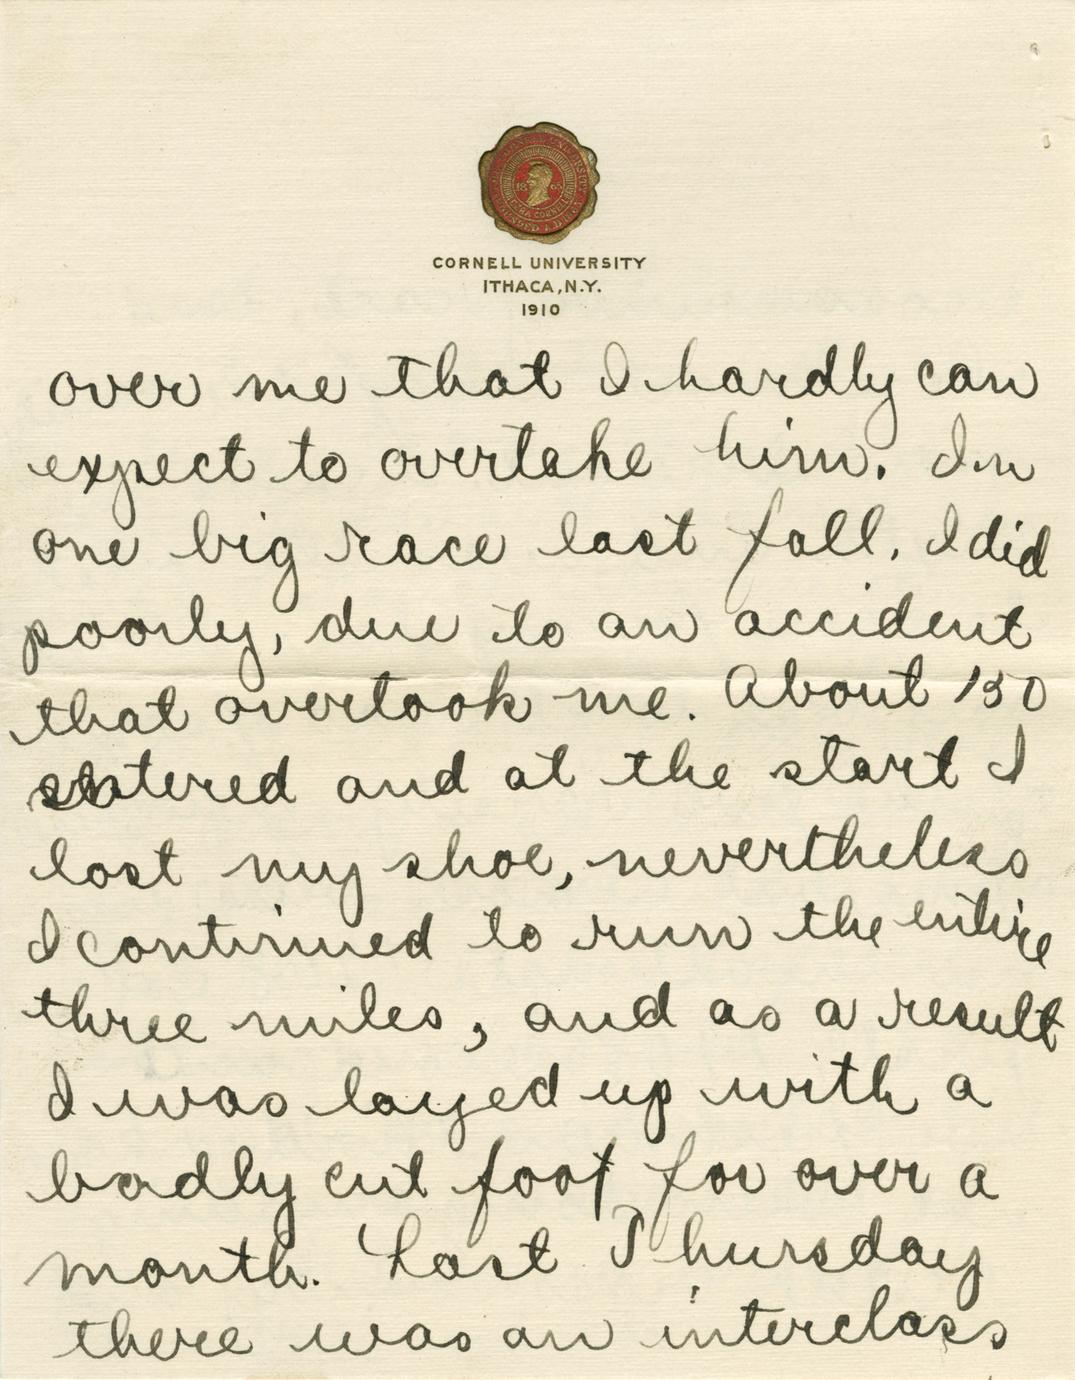 18 65
EZRA CORNELL
CORNELL UNIVERSITY
ITHACA, N.Y.
1910
over me that I hardly can
expect to overtake him. In
one big race last fall, I did
poorly, due to an accident
that overtook me. About 150
entered and at the start I
lost my shoe, nevertheless
I continued to run the entire
three miles, and as a result
I was layed up with a
badly cut foot for over a
month. Last Thursday
there was an interclass